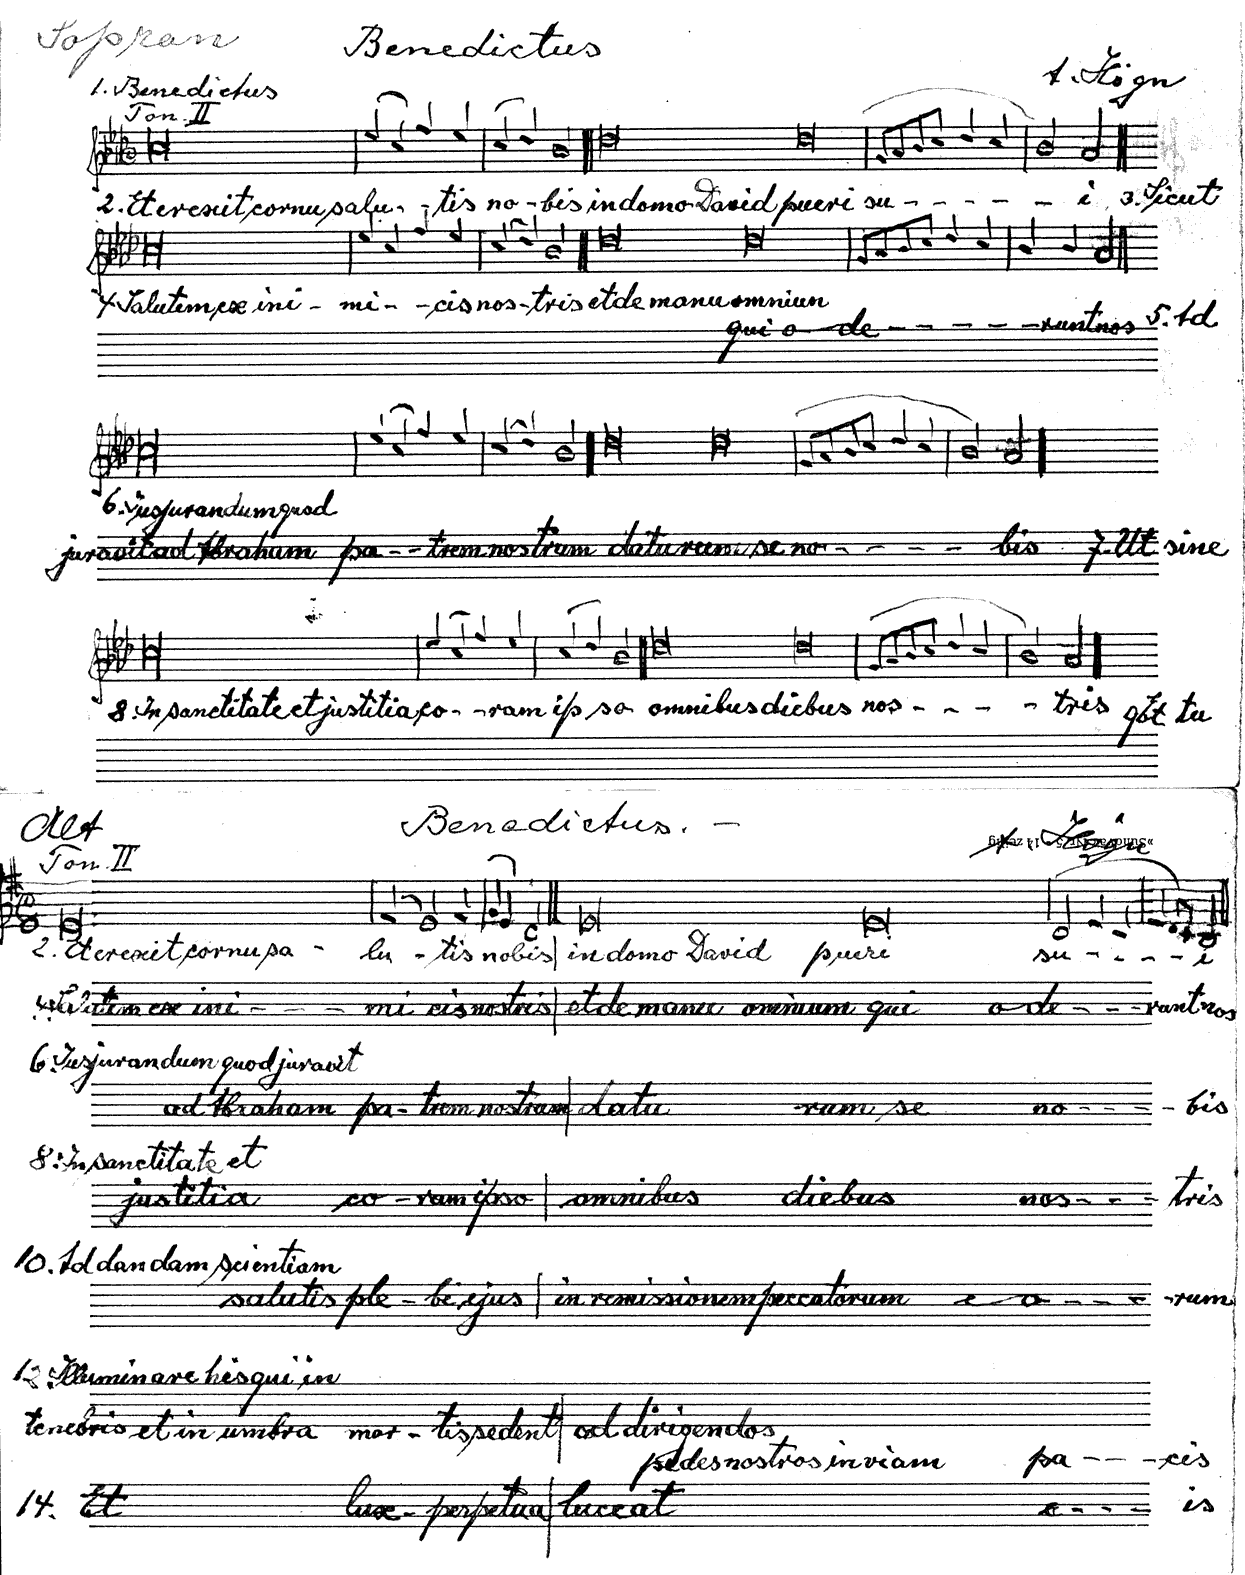 Sopran Benedictus
A. Högn
1. Benedictus
Ton. II
2. Et erexit, cornu, salu - - tis no - bis in domo David pueri su - - - - - - i 3. Sicut
4. Salutem, ex ini - mi - - cis nos - tris et de manu omnium
qui o - de - - - - - - runt nos 5. Ad
6. Jusjurandum quod
juravit ad Abraham pa - - trem nostrum daturum, se no - - - - - bis 7. Ut sine
8. In sanctitate et justitia, co - - ram ip so omnibus diebus nos - - - - tris 9. et tu
Alt Benedictus. -
A. Högn
Ton. II
2. Et erexit, cornu, sa - lu - tis nobis in domo David pueri su - - - - i
4. Salutem ex ini - - - - mi cis nostris et de manu omnium qui o de - - - runt nos
6. Jusjurandum quod juravit
ad Abraham pa - trem nostrum datu rum, se no - - - - bis
8. In sanctitate et
justitia co - ram ipso omnibus diebus nos - - - tris
10. Ad dandam scientiam
salutis ple - bi, ejus in remissionem peccatorum e o - - - - rum
12. Illuminare his qui in
tenebris et in umbra mor - tis, sedent ad dirigendos
pedes nostros in viam pa - - - cis
14. Et lux - perpetua luceat e - - - is